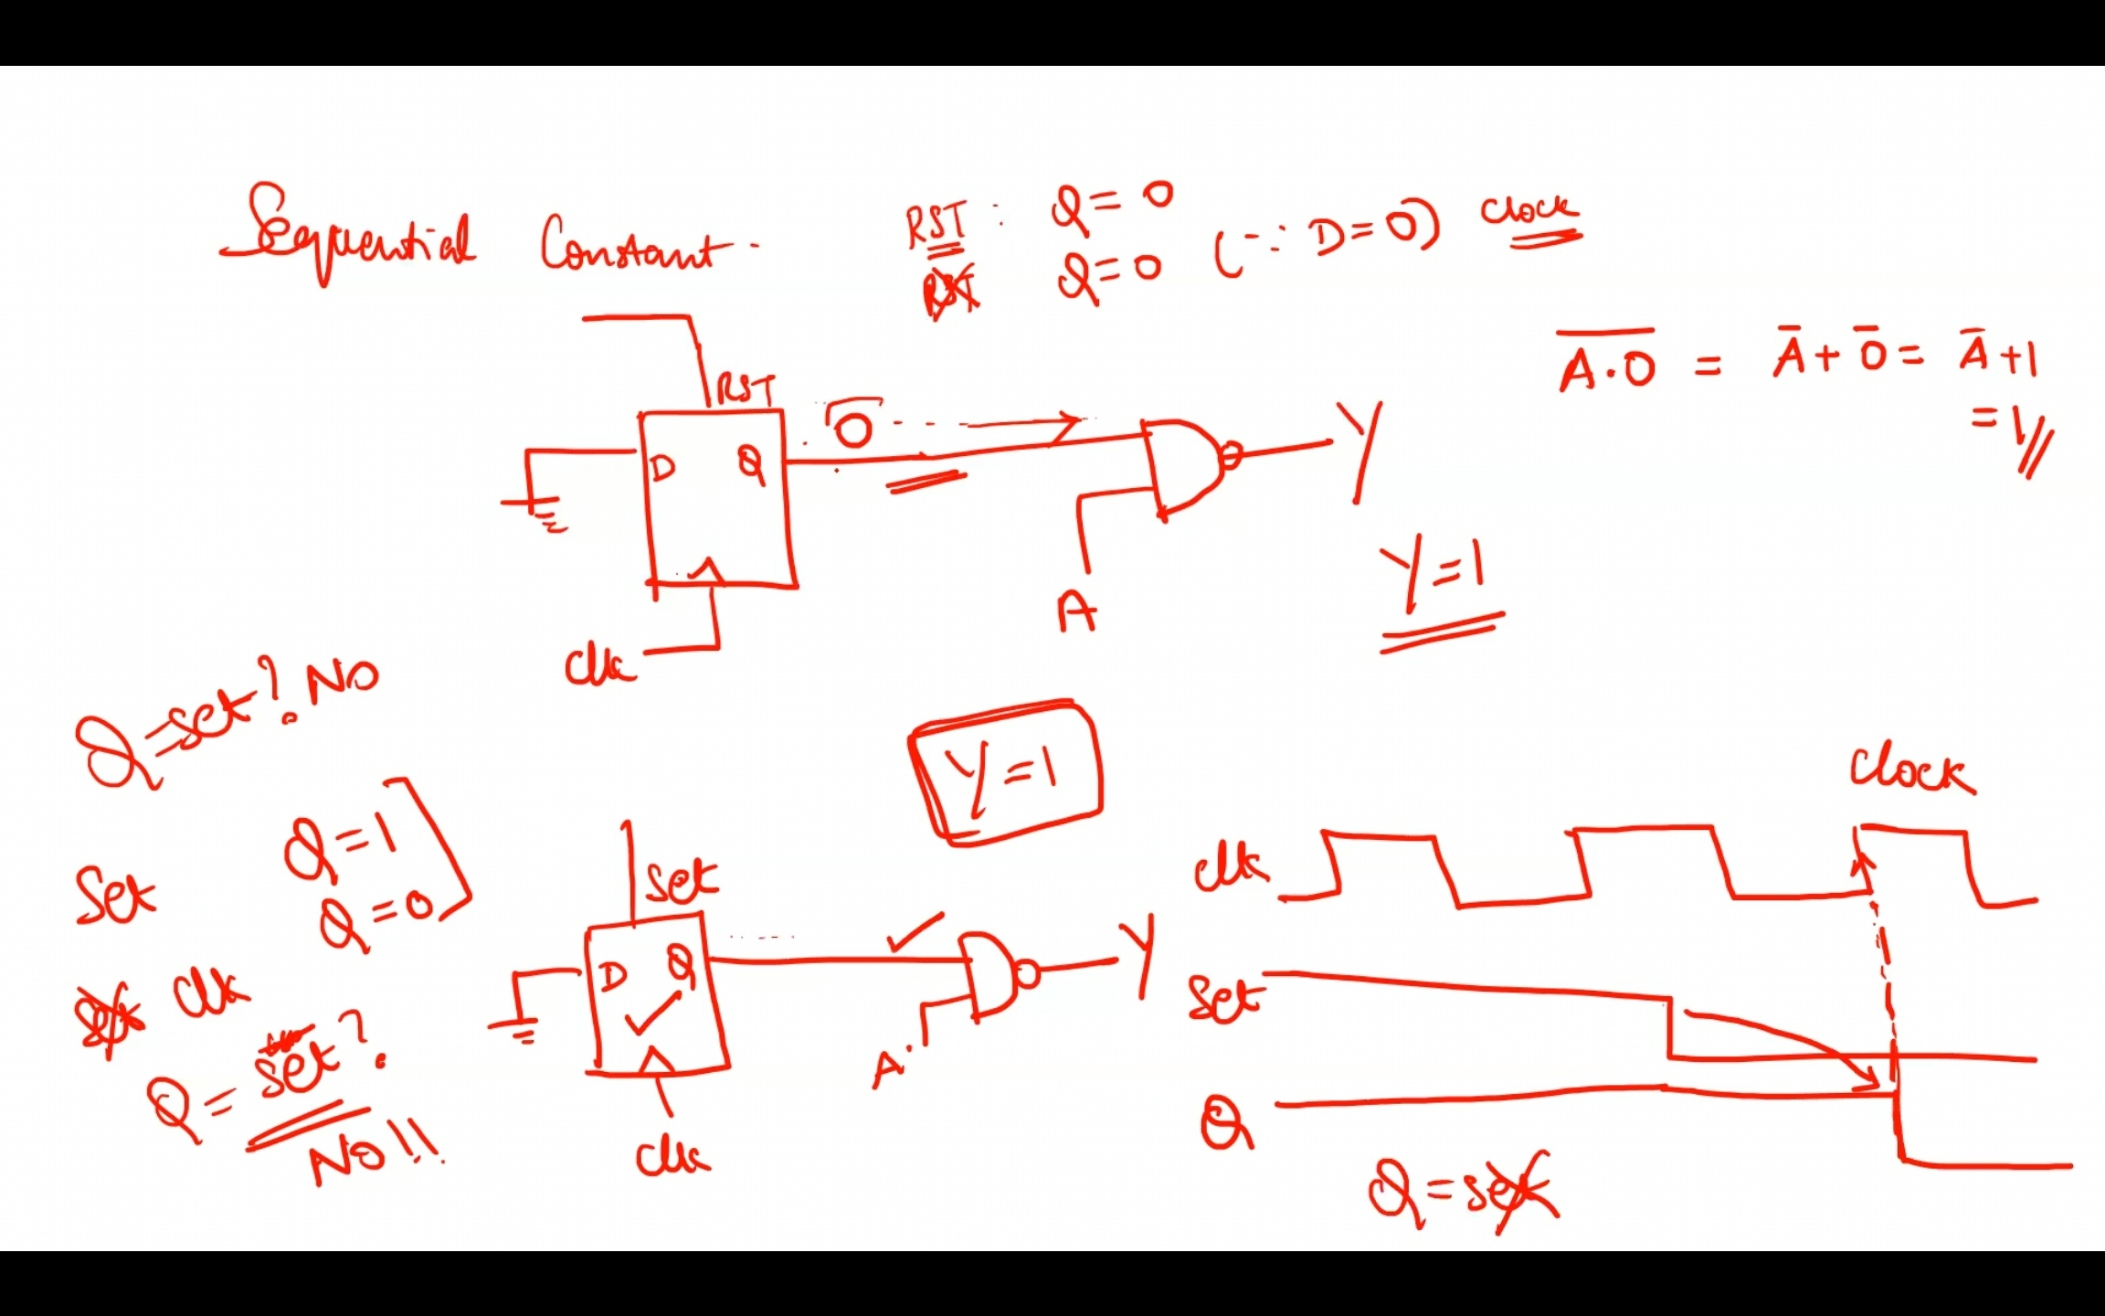 Sequential Constant
RST : Q = 0
RST Q = 0 (∵ D = 0) clock
A̅·̅0̅ = A̅ + 0̅ = A̅ + 1
= 1
RST
D Q
0
Y
A
clk
Y = 1
Q = set? NO
Y = 1
Set Q = 1
Q = 0
set clk
Q = set?
NO!!
set
D Q
Y
A
clk
clock
clk
Set
Q
Q = set